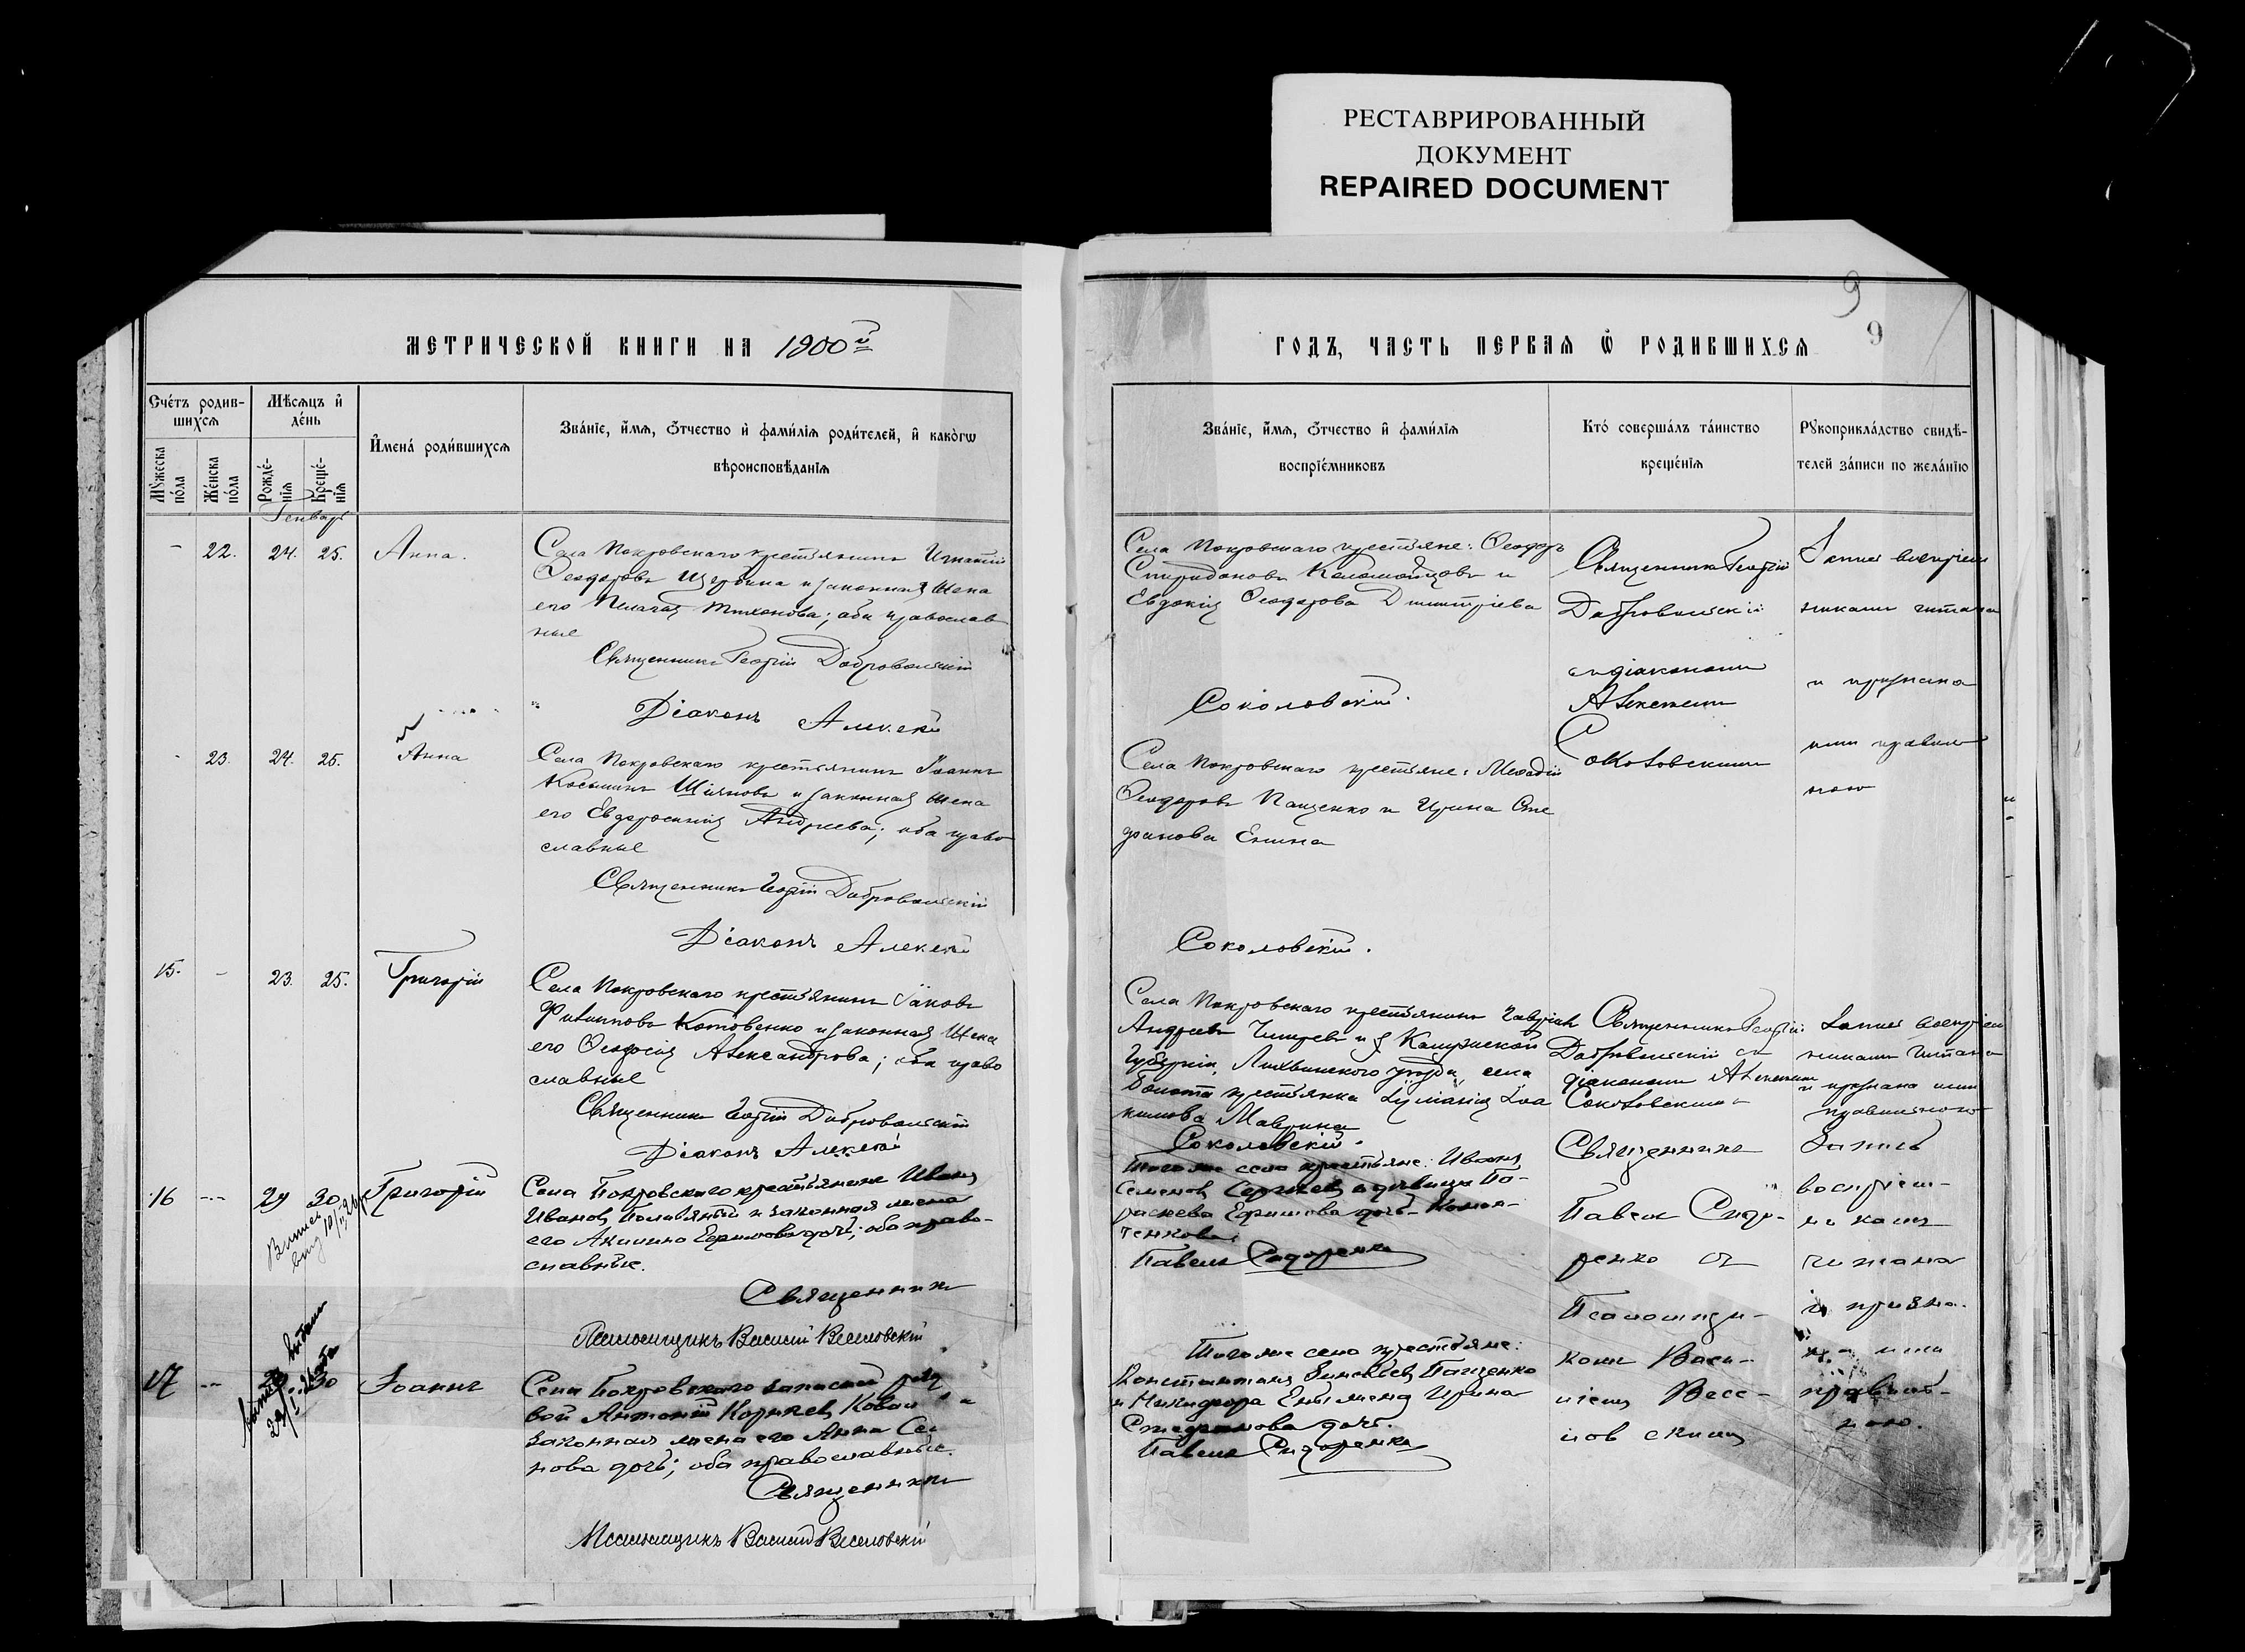 РЕСТАВРИРОВАННЫЙ
ДОКУМЕНТ
REPAIRED DOCUMENT
9
9
МЕТРИЧЕСКОЙ КНИГИ НА 1900й
ГОДЪ, ЧАСТЬ ПЕРВАЯ Ѡ РОДИВШИХСЯ
Счéтъ родив-
шихся
Мѣсяцъ и
дéнь
Мꙋжеска
пóла
Жéнска
пóла
Рождé-
нія
Крещé-
нія
Именá родившихся
Звáніе, имя, ѻтчество и фамилія родителей, и какóгѡ
вѣроисповѣданія
Звáніе, имя, ѻтчество и фамилія
воспріéмниковъ
Ктó совершáлъ тáинство
крещéнія
Рꙋкоприклáдство свидѣ-
телей зáписи по желáнію
Генварь
- 22. 24. 25. Анна.
Села Покровскаго крестьянинъ Игнатій
Ѳеодоровъ и законная жена
его Пелагея Тихонова; оба православ
ные
Священникъ Георгій Добровольскій
Діаконъ Алексѣй
Села Покровскаго крестьяне: Ѳеодоръ
Спиридоновъ Коломойцовъ и
Евдокія Ѳеодорова Димитріева
Соколовскій.
Священникъ Георгій
Добровольскій
съ діакономъ
Алексѣемъ
Соколовскимъ
Запись воспріем
никами читана
и признана
ими правиль
ною
- 23. 24. 25. Анна
Села Покровскаго крестьянинъ Іоаннъ
Косьминъ и законная жена
его Евдоросинія Андреева; оба право
славные
Священникъ Георгій Добровольскій
Діаконъ Алексѣй
Села Покровскаго крестьяне: Меѳодій
Ѳеодоровъ Пащенко и Ирина Сте
фанова Енина
Соколовскій.
15. - 23. 25. Григорій
Села Покровскаго крестьянинъ Іаковъ
Филипповъ Котовенко и законная жена
его Ѳеодосія Александрова; оба право
славные
Священникъ Георгій Добровольскій
Діаконъ Алексѣй
Села Покровскаго крестьянинъ Гавріилъ
Андреевъ и Калужской
Губерніи, Лихвинскаго уѣзда, села
крестьянка Іуліанія Іоа
кимова Маврина
Соколовскій.
Священникъ Георгій
Добровольскій съ
діакономъ Алексѣемъ
Соколовскимъ
Запись воспріем
никами читана
и признана ими
правильною
16 -- 29 30 Григорій
Села Покровскаго крестьянинъ Иванъ
Ивановъ и законная жена
его Акилина Ефимова дочь; оба право-
славные.
Священникъ
Псаломщикъ Василій Веселовскій
Того же села крестьяне: Иванъ
Семеновъ Сергѣевъ и дѣвица Па-
раскева Ефимова дочь
Павелъ Сидоренко
Священникъ
Павелъ Сидо-
ренко съ
Псаломщи-
комъ Васи-
ліемъ Весе-
ловскимъ
Запись
воспріем-
никами
читана
и призна-
на ими
правиль-
ною.
17 -- 30 Іоаннъ
Села Покровскаго запасный рядо
вой Антоній Корнѣевъ и
законная жена его Анна
нова дочь; оба православные.
Священникъ
Псаломщикъ Василій Веселовскій
Того же села крестьяне:
Константинъ Пащенко
и Никифора жена Ирина
Стефанова дочь.
Павелъ Сидоренко